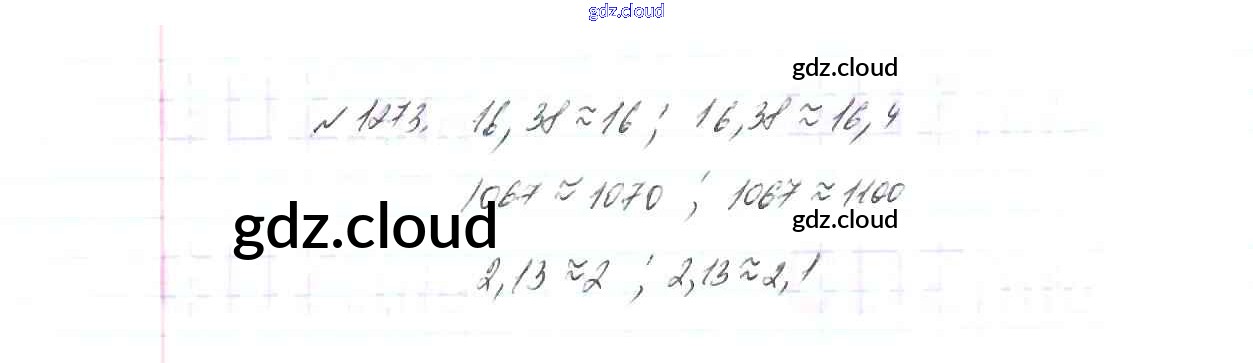 gdz.cloud
gdz.cloud
№ 1273. 16,38 ≈ 16 ; 16,38 ≈ 16,4
1067 ≈ 1070 ; 1067 ≈ 1100
gdz.cloud
gdz.cloud
2,13 ≈ 2 ; 2,13 ≈ 2,1